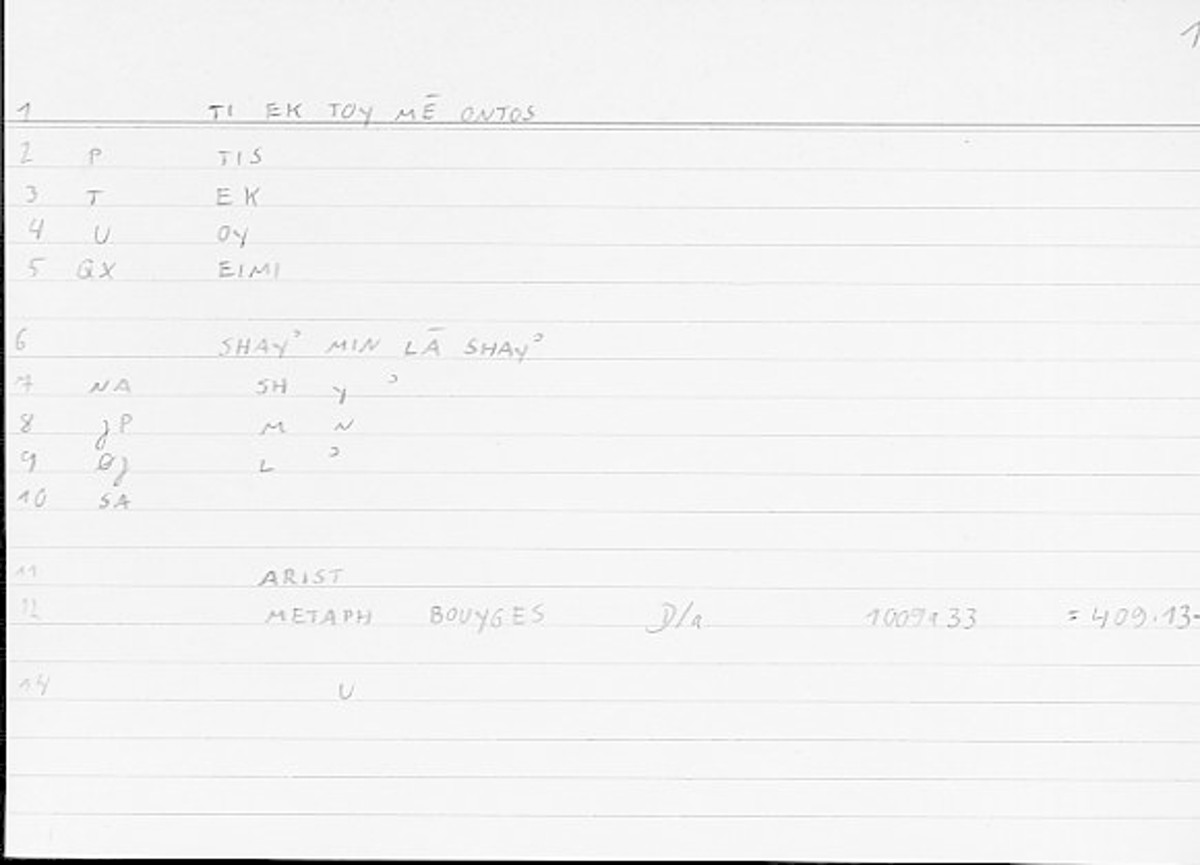 1
1 TI EK TOY MĒ ONTOS
2 P TIS
3 T EK
4 U OY
5 GX EIMI
6 SHAYʾ MIN LĀ SHAYʾ
7 NA SH Y ʾ
8 JP M N
9 ØJ L ʾ
10 SA
11 ARIST
12 METAPH BOUYGES D/a 1009a33 = 409.13-
14 U